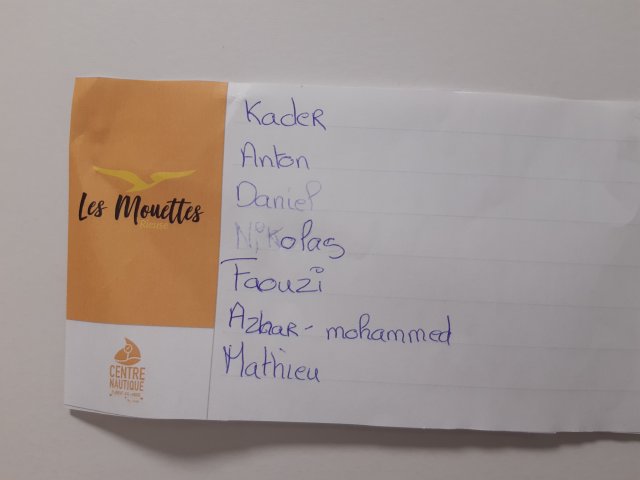 Les Mouettes
Rieuse
CENTRE
NAUTIQUE
Kader
Anton
Daniel
Nikolas
Faouzi
Azhar - mohammed
Mathieu